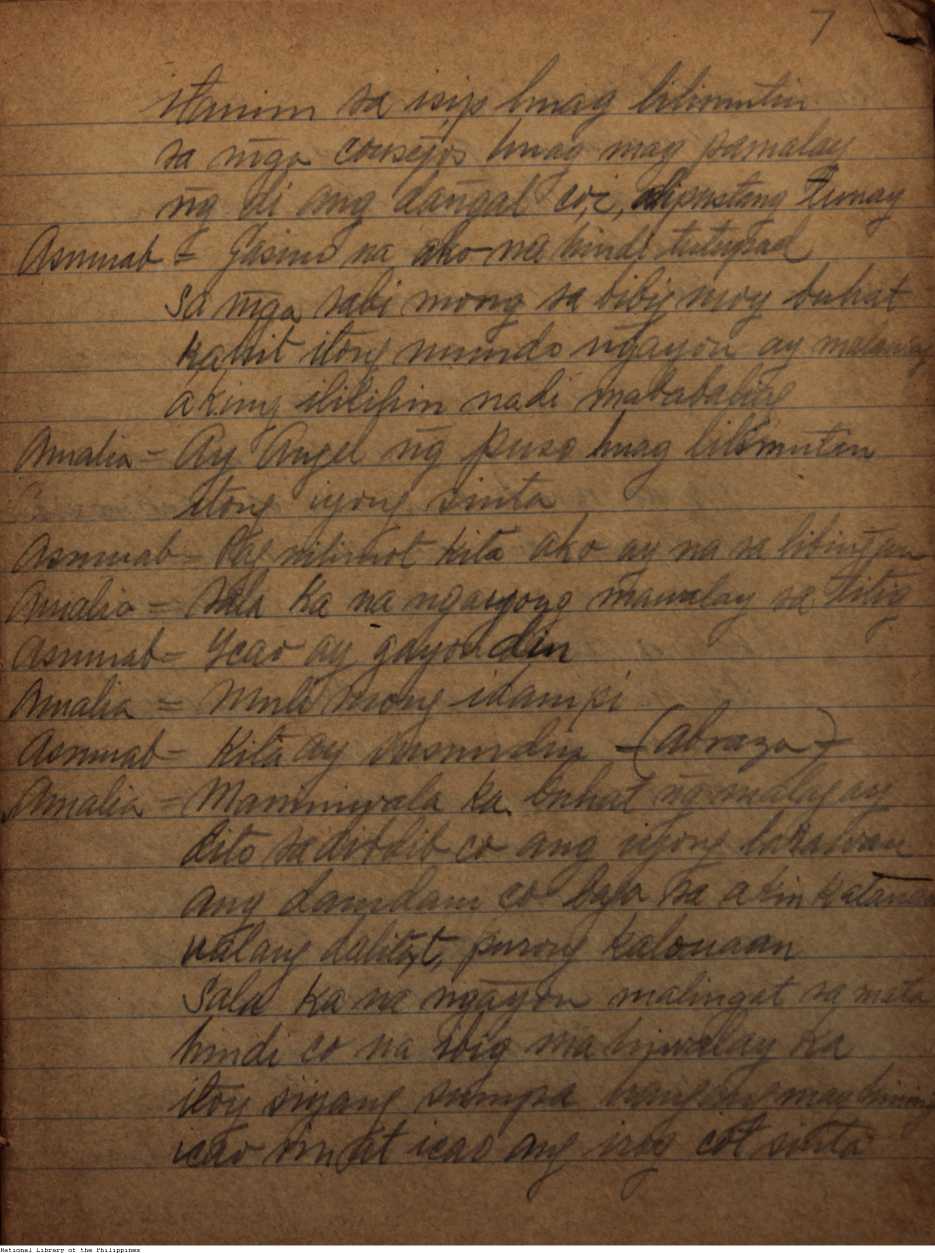 7
itanim sa isip huag lilimutin
sa mḡa consejos huag mag pamalay
nḡ di ang danḡal co,i, tunay
Asmurab = Jasino na ako na hindi tutupad
sa mḡa sabi mong sa bibig moy buhat
kahit itong mundo nḡayon ay
aking ililihim nadi mababakas
Amalia = Ay Angel nḡ puso huag lilimutin
itong iyong sinta
Asmurab = Pag nilimot kita ako ay na sa libinḡan
Amalia = Sala ka na ngayong mawalay sa titig
Asmurab = Ycao ay gayon din
Amalia = Muli mong idampi
Asmurab = Kita ay susundin = (abrazo)
Amalia = Maniniwala ka buhat nḡ maligaya
dito sa dibdib co ang iyong larawan
ang damdam co baga sa akin katawan
walang dalita,t, purong kalouaan
Sala ka na nḡayon malingat sa mata
hindi co na ibig ma hiwalay ka
itoy siyang sumpa
icao rin at icao ang irog cot sinta
National Library of the Philippines